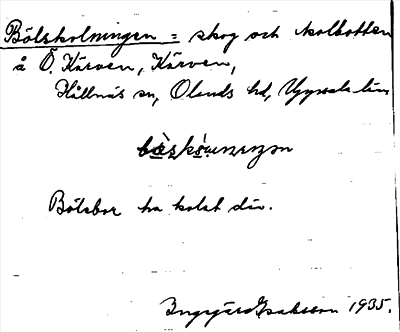 Bölskolningen = skog och kolbotten
å Ö. Kärven, Kärven,
Hållnäs sn, Olands hd, Uppsala län
Bölsbor ha kolat där.
Ingegärd Isaksson 1935.